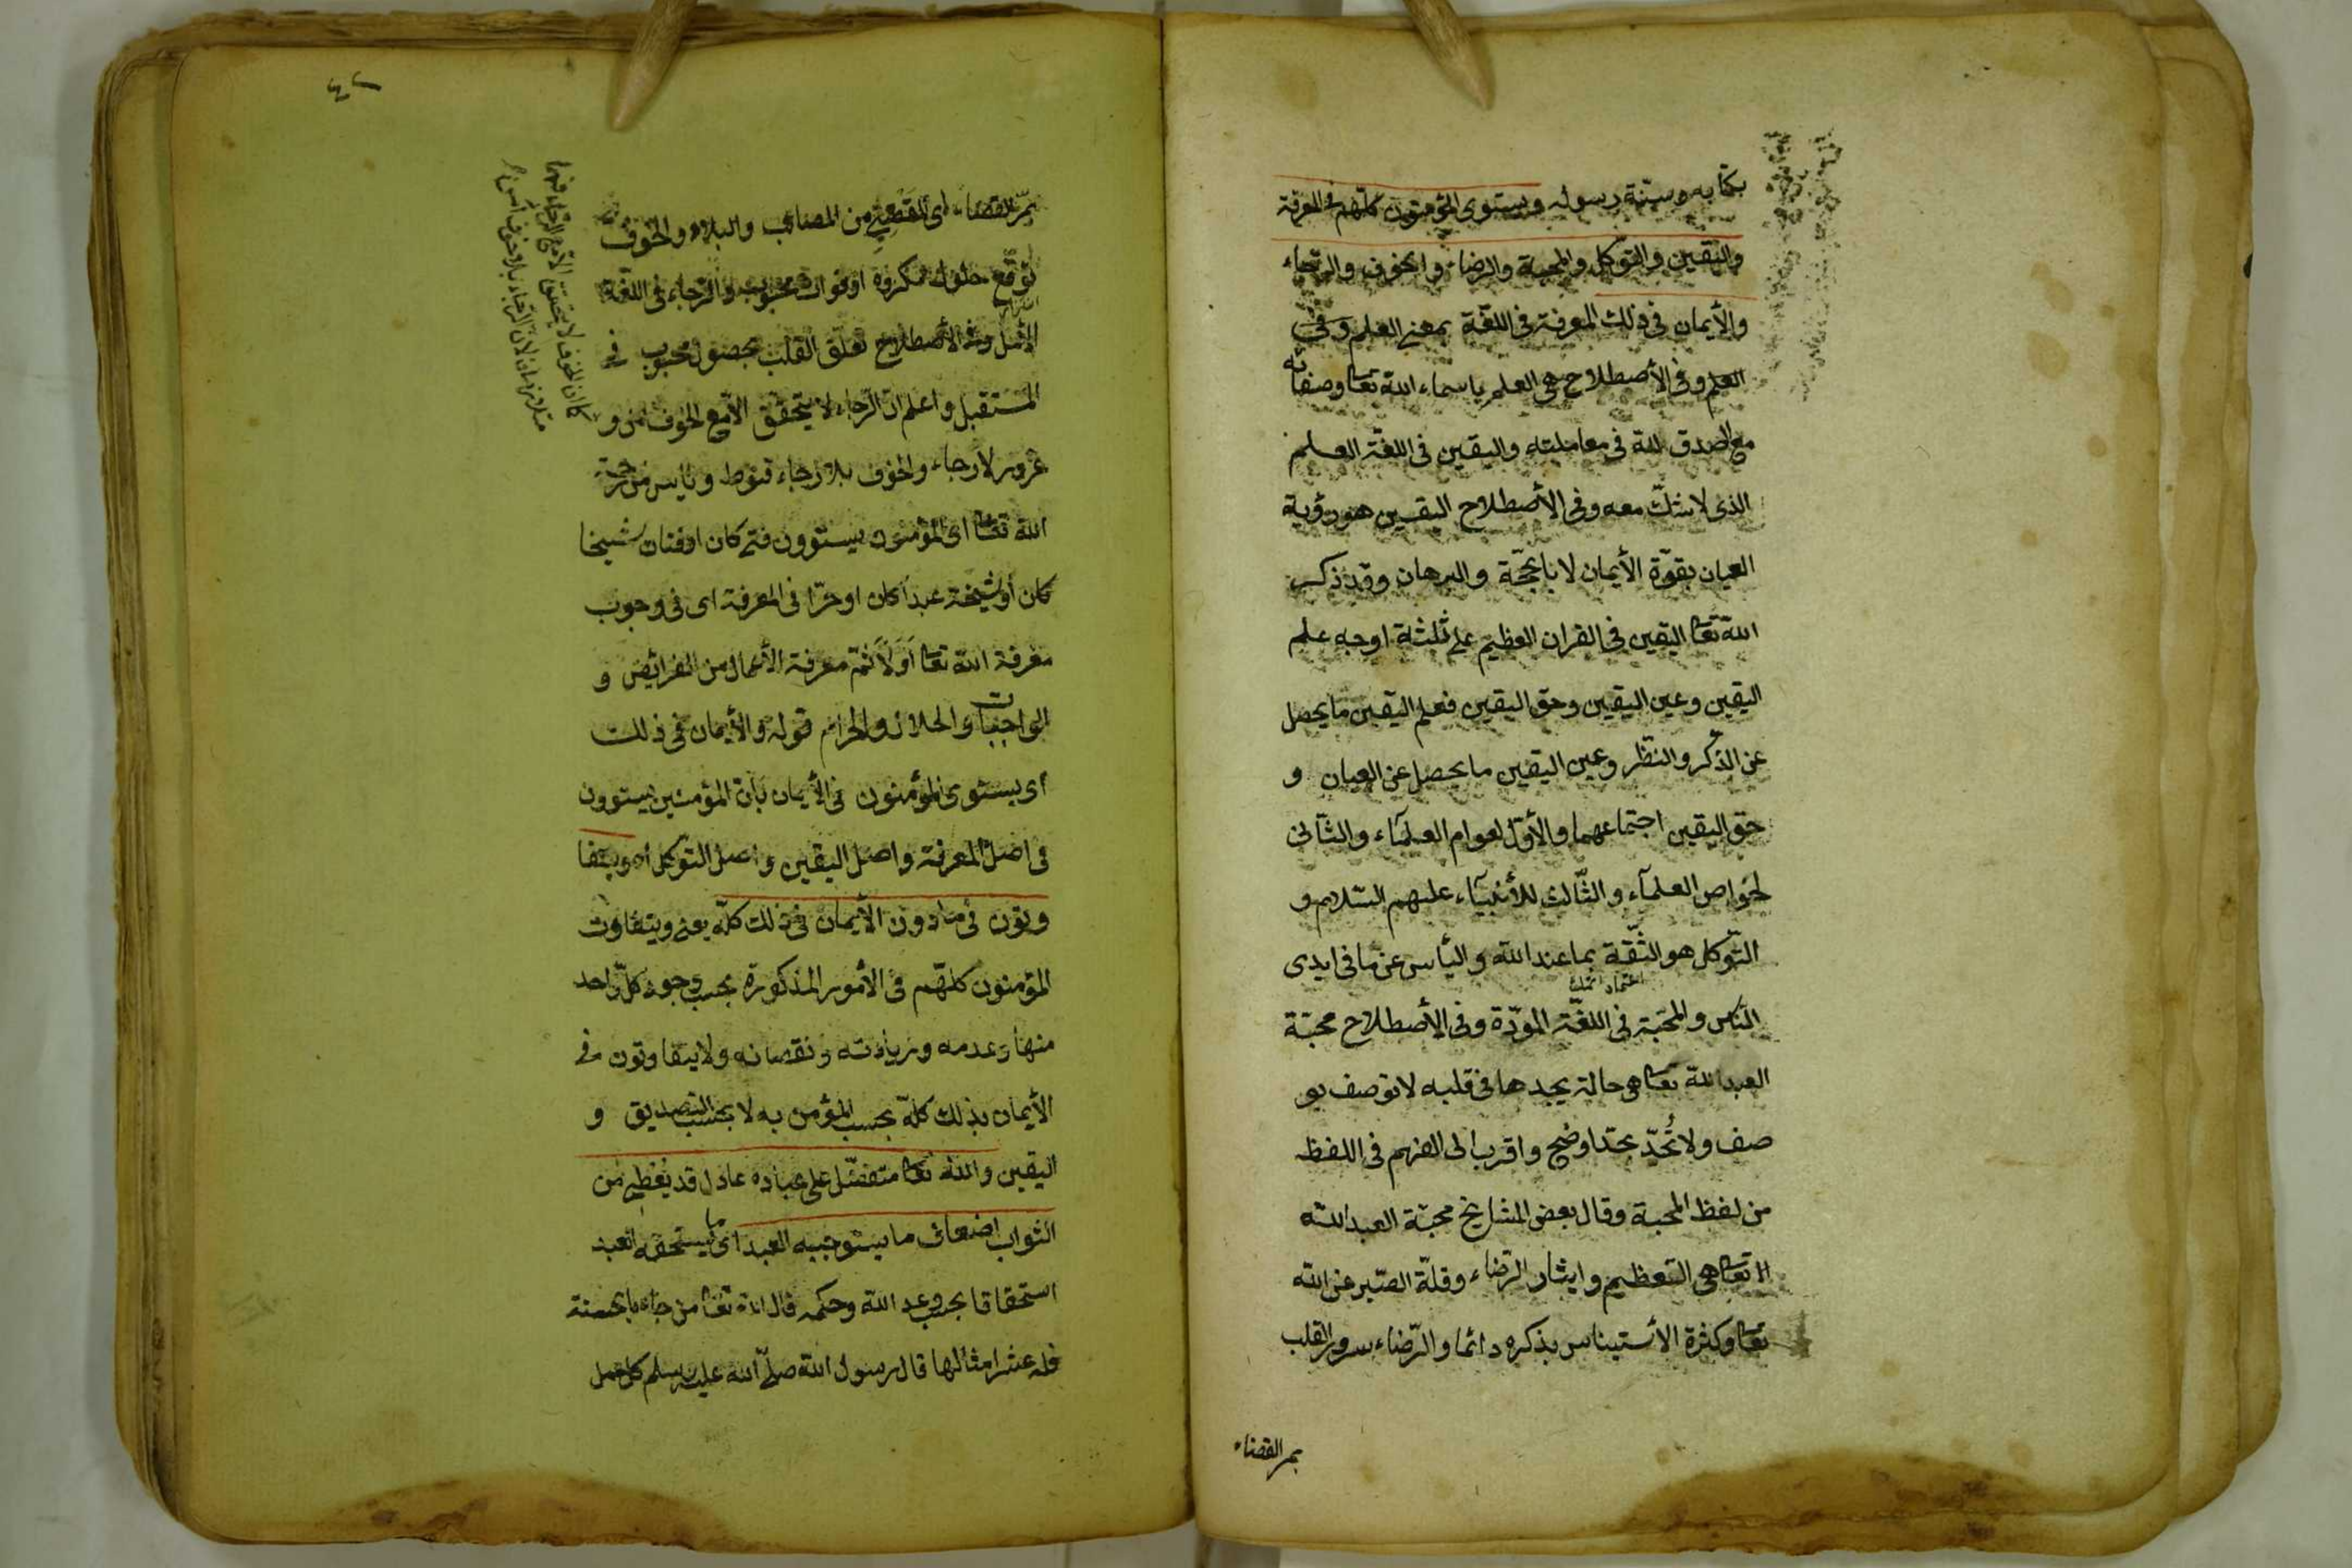 بكتابه وسنّة رسوله ويستوى المؤمنون كلّهم فى المعرفة
واليقين والتوكّل والمحبة والرضاء والخوف والرجاء
والأيمان فى ذلك المعرفة فى اللغة بمعنى العلم وفى
العلم وفى الأصطلاح هى العلم باسماء الله تعا وصفاته
مع الصدق لله فى معاملته واليقين فى اللغة العلم
الذى لا شكّ معه وفى الأصطلاح اليقين هو رؤية
العيان بقوّة الأيمان لا بالحجّة والبرهان وقد ذكر
الله تعا اليقين فى القران العظيم على ثلثة اوجه علم
اليقين وعين اليقين وحق اليقين فعلم اليقين ما يحصل
عن الذّكر والنظر وعين اليقين ما يحصل عن العيان و
حق اليقين اجتماعهما والأوّل لعوام العلمآء والثآنى
لخواص العلمآء والثّالث للأنبيآء عليهم السّلام و
التّوكل هو الثّقة بما عند الله واليأس عن ما فى ايدى
اعتماد اتمك
النّاس والمحبّة فى اللغّة المودّة وفى الأصطلاح محبّة
العبد لله تعا هى حالة يجدها فى قلبه لا توصف بو
صف ولا تُحدّ بحدّ اوضح واقرب الى الفهم فى اللفظ
من لفظ المحبة وقال بعض المشايخ محبّة العبد الله
تعا هى التعظيم وايثار الرّضاء وقلّة الصّبر عن الله
تعا وكثرة الأستيناس بذكره دائما والرّضاء سرور القلب
بمر القضاء
٤٢
بمرّ القضاء اى المقضى من المصائب والبلاء والخوف
توقّع حلول مكروه او فوات محبوب والرّجاء فى اللغة
الأمل وفى الأصطلاح تعلّق القلب بحصول محبوب فى
المستقبل واعلم ان الرّجاء لا يتحقق الاّ مع الخوف امن و
غرور لا رجاء والخوف بلا رجاء قنوط ويأس من رحمة
الله تعا اى المؤمنون يستوون فتى كان او فتاة شيخا
كان أو شيخة عبداً كان او حرّا فى المعرفة اى فى وجوب
معرفة الله تعا اوّلاً ثمّ معرفة الأعمال من الفرائض و
الواجبات والحلال والحرام قوله والأيمان فى ذلك
أى يستوى المؤمنون فى الأيمان بأنّ المؤمنين يستوون
فى اصل المعرفة واصل اليقين واصل التّوكل اه ويتفا
وتون فى ما دون الأيمان فى ذلك كلّه يعنى ويتفاوت
المؤمنون كلّهم فى الأمور المذكورة بحسب وجود كلّ واحد
منها وعدمه وزيادته ونقصانه ولا يتفاوتون فى
الأيمان بذلك كلّه بحسب المؤمن به لا بحسب التصديق و
اليقين والله تعا متفضّل على عباده عادل قد يعطى من
الثواب اضعاف ما يستوجبه العبد اى ما يستحقه العبد
استحقاقا بحسب وعد الله وحكمه قال الله تعا من جاء بالحسنة
فله عشر امثالها قال رسول الله صلّى الله عليه وسلم كل عمل
كما ان الخوف لا يتحقق الاّ مع الرّجاء فهما
متلازمان لان الرّجاء بلا خوف امن